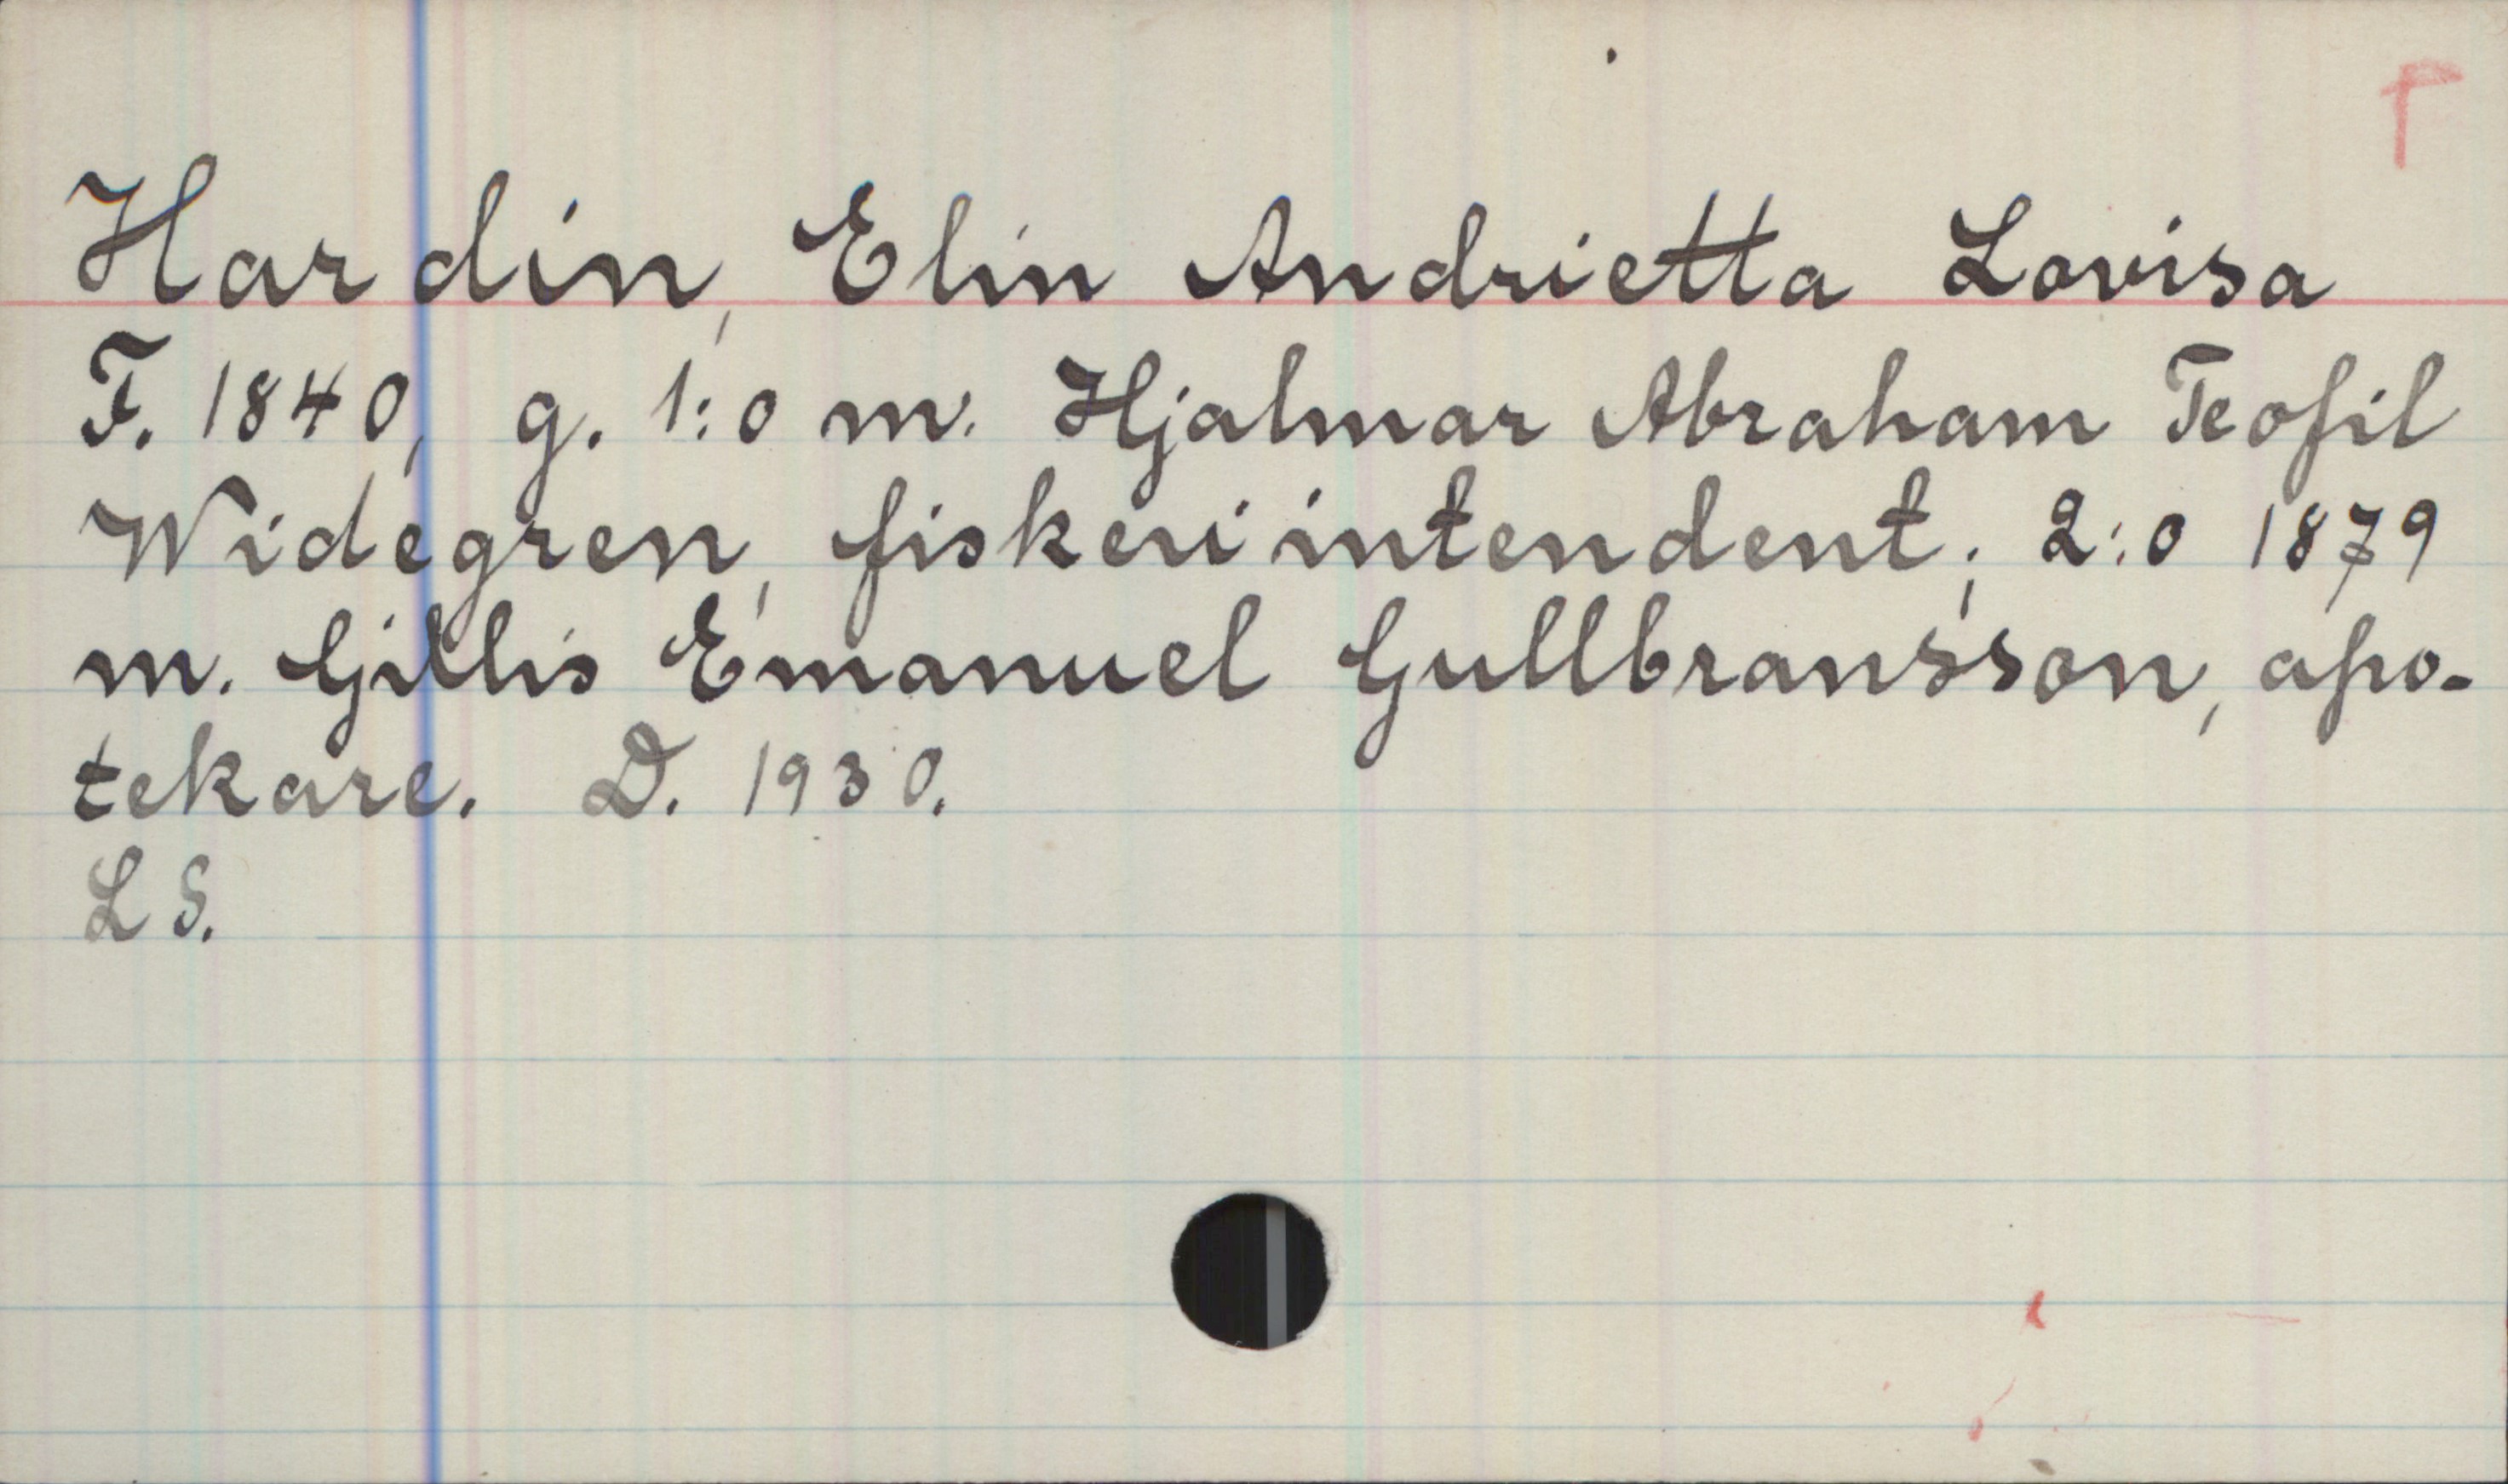 Hardin, Elin Andrietta Lovisa
F. 1840, g. 1:o m. Hjalmar Abraham Teofil
Widegren, fiskeriintendent; 2:o 1879
m. Gillis Emanuel Gullbransson, apo-
tekare. D. 1930.
L S.